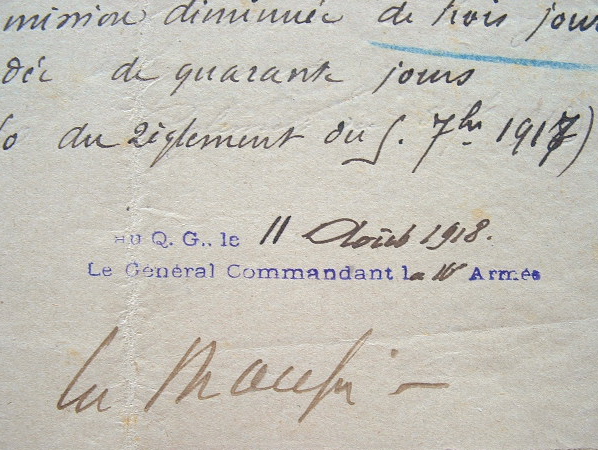 mission diminuée de trois jours
dée de quarante jours
du règlement du 5. 7bre 1917)
au Q. G., le 11 Août 1918.
Le Général Commandant la Armée